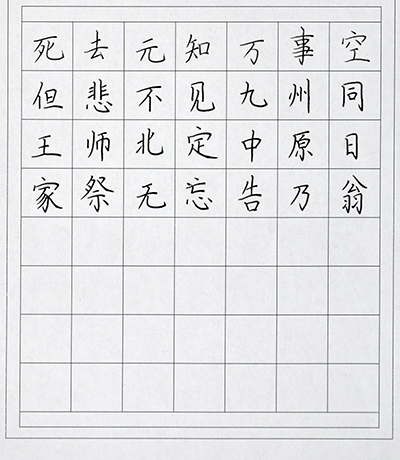 死去元知万事空
但悲不见九州同
王师北定中原日
家祭无忘告乃翁